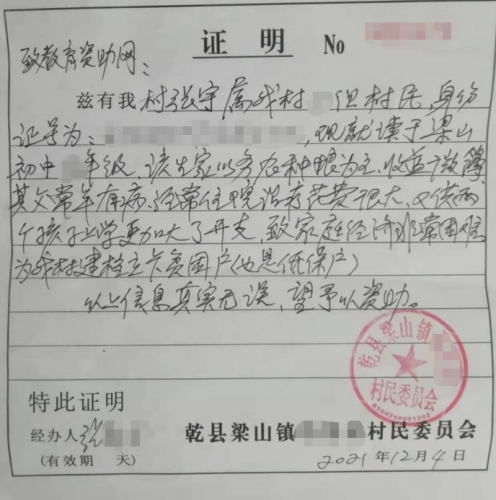 证明 No
致教育资助网：
兹有我村张宇属我村 组村民，身份
证号为： ，现就读于梁山
初中 年级。该生家以务农种粮为主，收益微薄
其父常年有病，经常住院治疗花费很大，又供两
个孩子上学更加大了开支，致家庭经济非常困难
为我村建档立卡贫困户(也是低保户)
以上信息真实无误，望予以资助。
乾县梁山镇
村民委员会
特此证明
经办人 张
乾县梁山镇 村民委员会
(有效期 天)
2021年12月4日